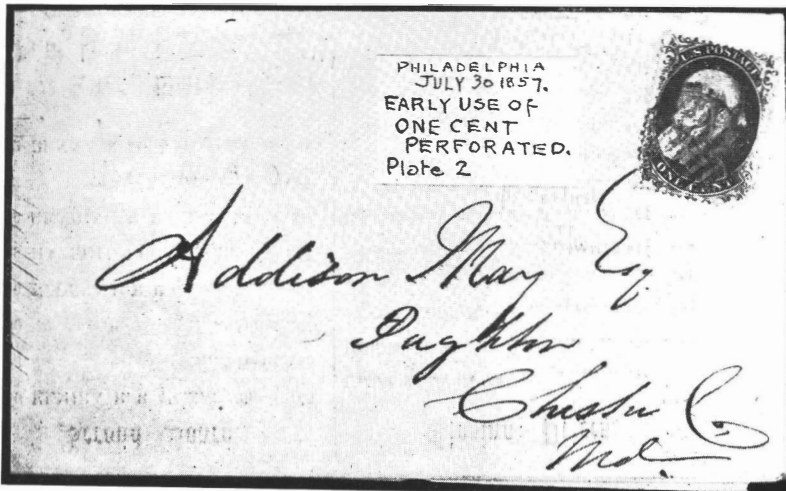 PHILADELPHIA
JULY 30 1857.
EARLY USE OF
ONE CENT
PERFORATED.
Plate 2
U.S. POSTAGE
ONE CENT
Addison May Esq.
Chester Co
Md.